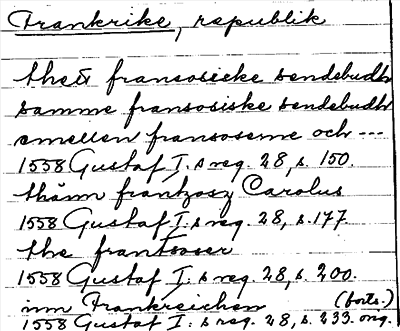 Frankrike, republik
thett fransosiske sendebudh
samme fransosiske sendebudh
emellen fransoserne och ---
1558 Gustaf I:s reg. 28, s. 150.
thänn frantzosz Carolus
1558 Gustaf I:s reg. 28, s. 177
the frantsoser
1558 Gustaf I:s reg. 28, s. 200.
inn Franckreichen (forts.)
1558 Gustaf I:s reg. 28, s. 233. orig.